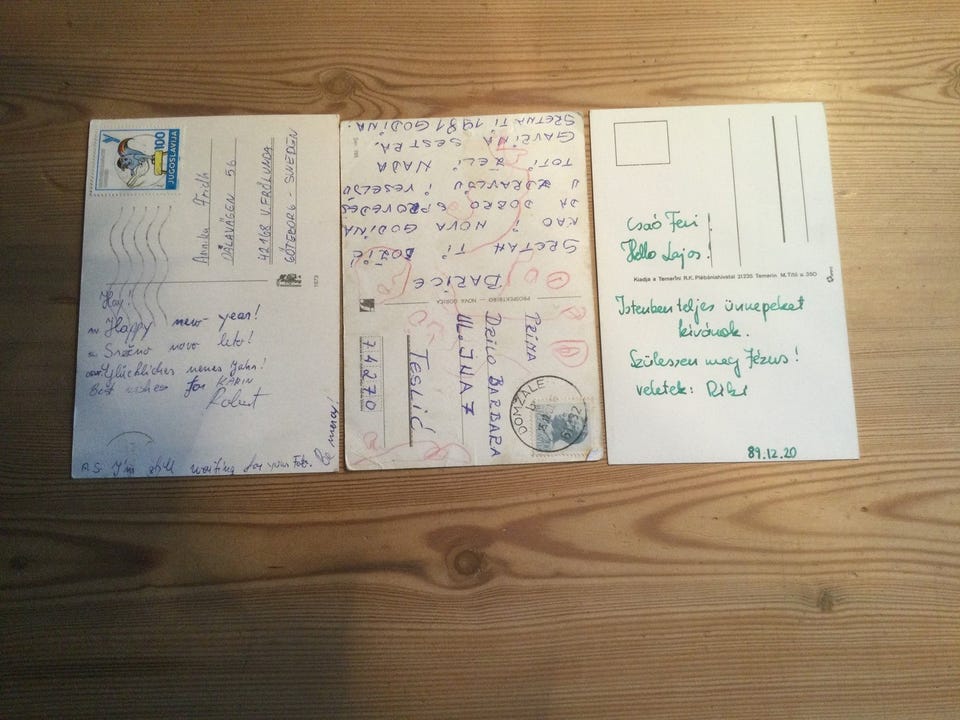 100
JUGOSLAVIJA
Annika Fridh
DÅLAVÄGEN 56
42168 V. FRÖLUNDA
GÖTEBORG - SWEDEN
1573
Hoy!
Happy new-year!
Srečno novo leto!
Glückliches neues Jahr!
Best wishes for KARIN
Robert
P.S. I'm still waiting for your Foto.
SRETAN TI BOŽIĆ
KAO I NOVA GODINA
DA DOBRO SPROVEDEŠ
U ZDRAVLJU I VESELJU
TOTI ŽELI NADA
GAVRINA SESTRA.
SRETNA TI 1981 GODINA.
DARICE
PROSPEKTBIRO — NOVA GORICA
PRIMA
DRILO BARBARA
UL. JNA 7
TESLIĆ
74270
DOMŽALE
Csaó Feri!
Hello Lajos!
Kiadja a Temerini R.K. Plébániahivatal 21235 Temerin M. Titó u. 350
Istenben teljes ünnepeket
kívánok.
Szülessen meg Jézus!
veletek: Riki
89.12.20